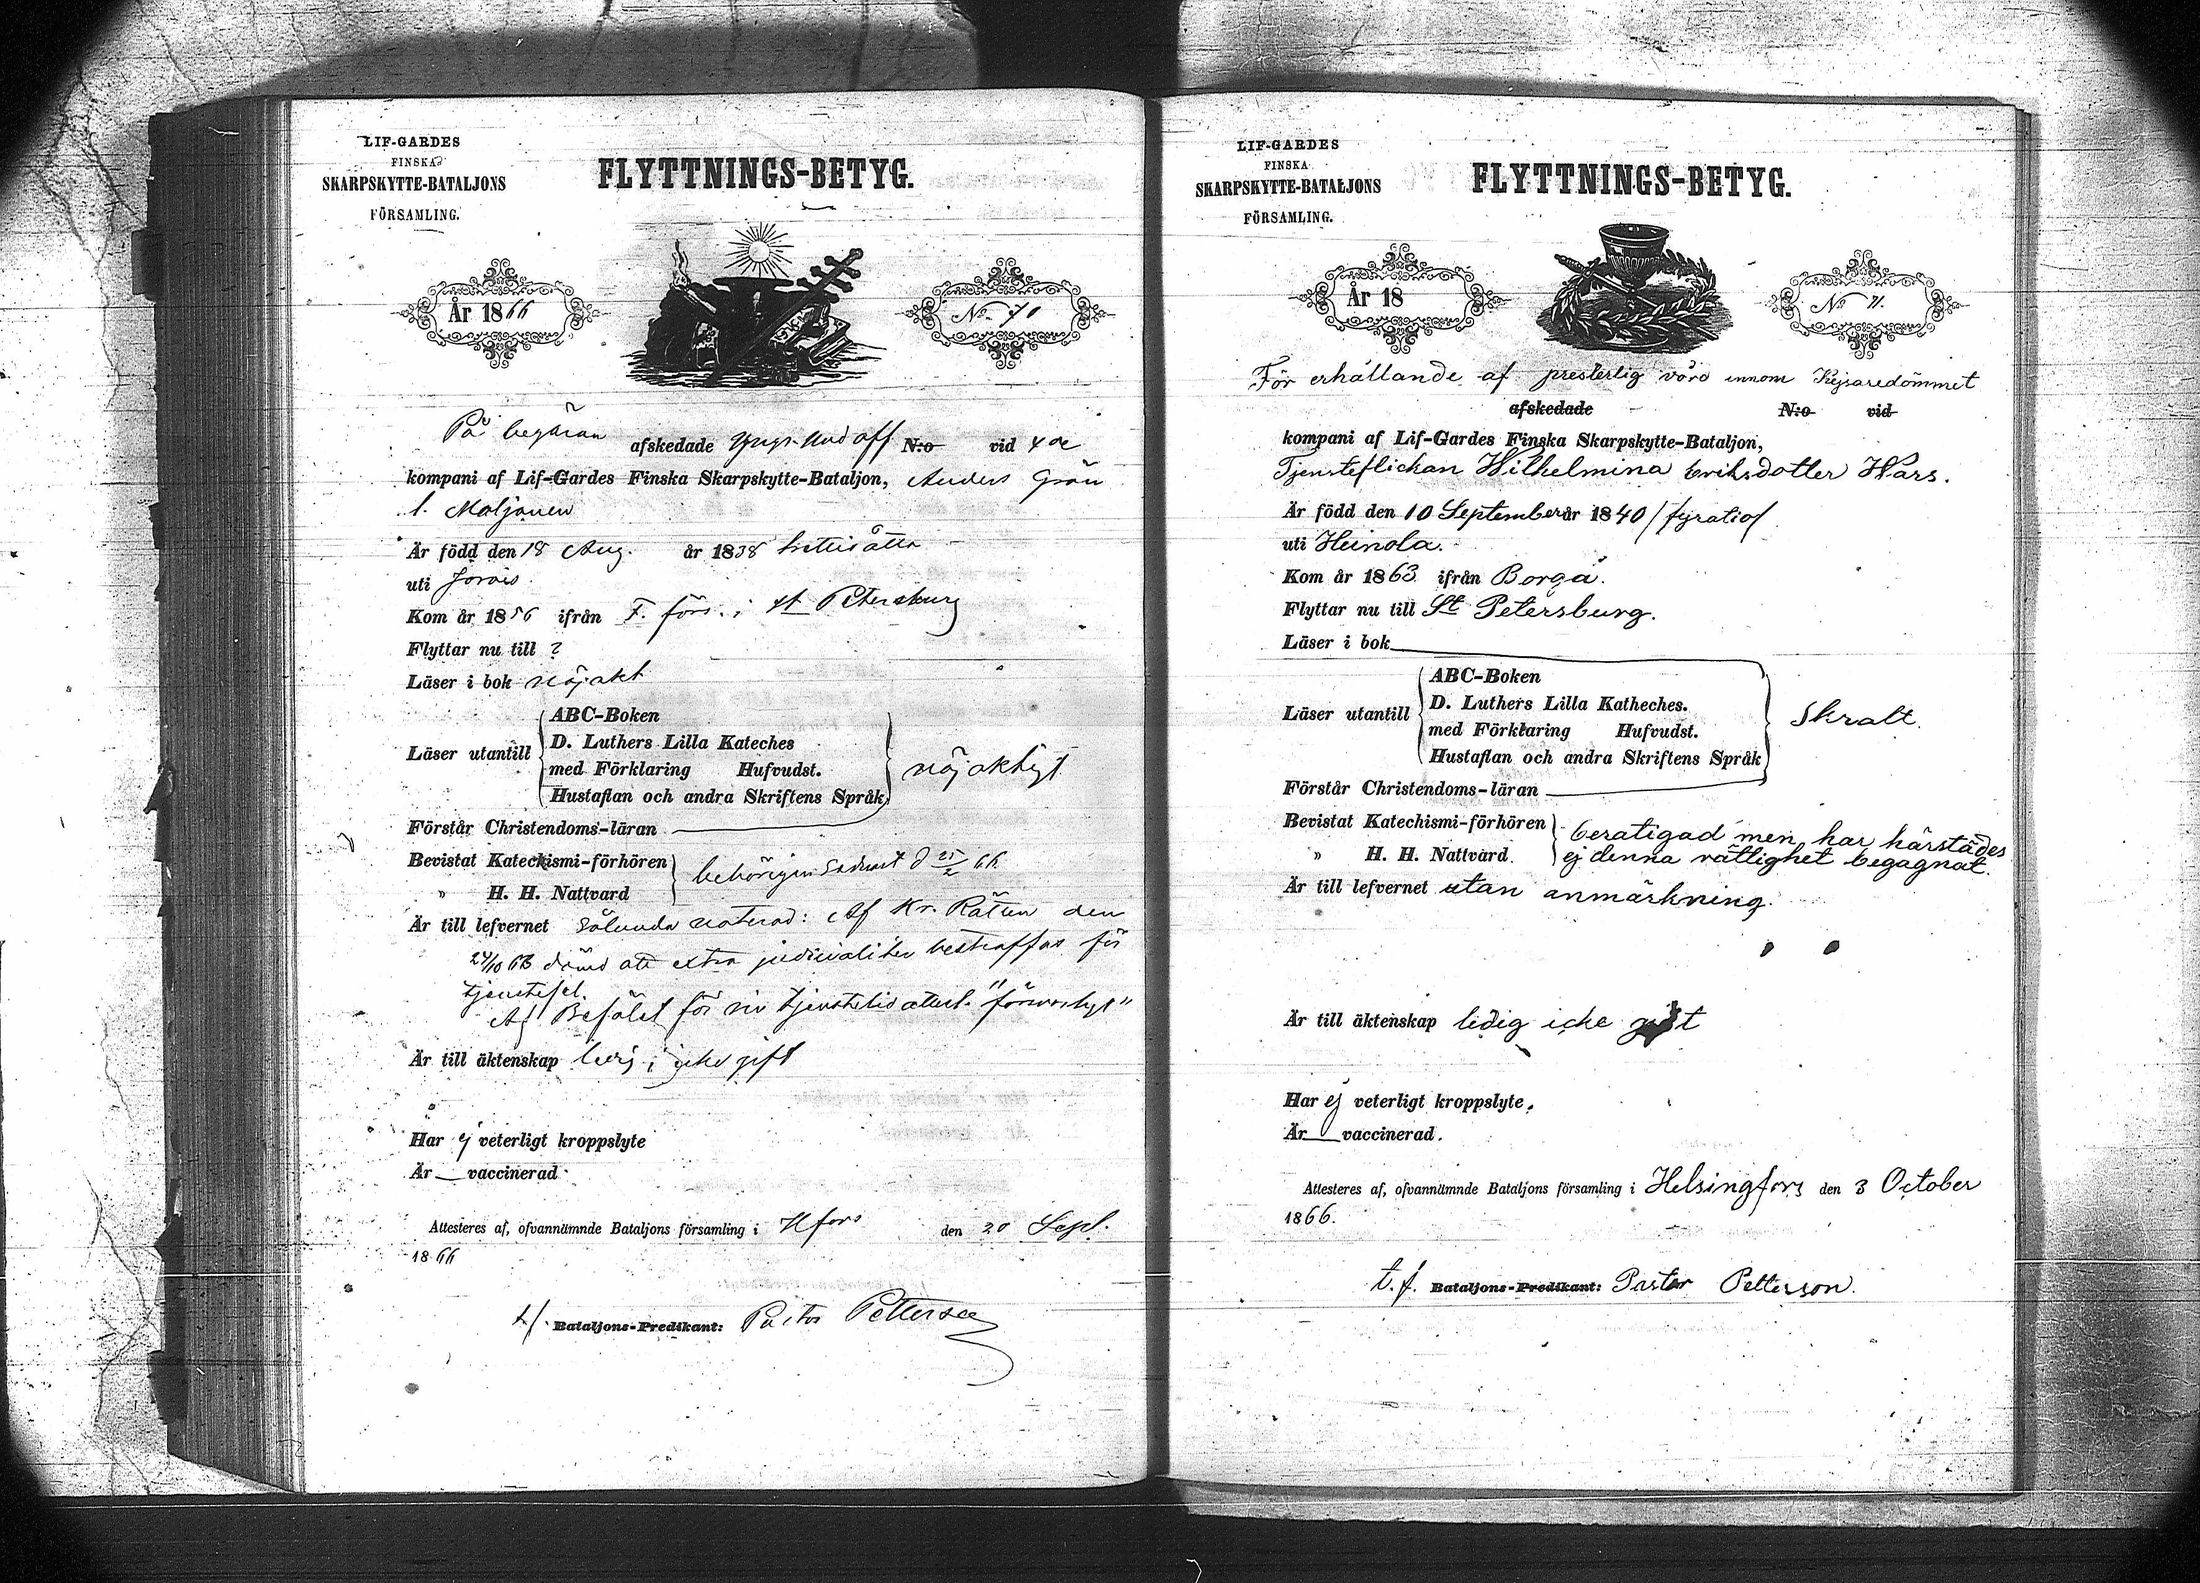 LIF-GARDES
FINSKA
SKARPSKYTTE-BATALJONS
FÖRSAMLING.
FLYTTNINGS-BETYG.
År 1866
No 70
På begäran afskedade Und off N:o vid 4de
kompani af Lif-Gardes Finska Skarpskytte-Bataljon, Anders Grön
l. Moljanen
Är född den 18 Aug. år 1838 trettiåtta
uti Jorois
Kom år 1856 ifrån F. förs. i St Petersburg
Flyttar nu till ?
Läser i bok nöjakt
Läser utantill
ABC-Boken
D. Luthers Lilla Kateches
med Förklaring Hufvudst.
Hustaflan och andra Skriftens Språk
nöjaktigt
Förstår Christendoms-läran
Bevistat Katechismi-förhören
" H. H. Nattvard
behörigen senast d 25/2 66
Är till lefvernet sålunda noterad: Af Kr. Rätten den
24/10 63 dömd att extra judicialiter bestraffas för
tjenstefel.
Af Befälet för sin tjenstetid attest. "försvarligt"
Är till äktenskap ledig, icke gift
Har ej veterligt kroppslyte
Är vaccinerad
Attesteres af, ofvannämnde Bataljons församling i Hfors den 20 Sept.
1866
t.f. Bataljons-Predikant: Pastor Petterson
LIF-GARDES
FINSKA
SKARPSKYTTE-BATALJONS
FÖRSAMLING.
FLYTTNINGS-BETYG.
År 18
No 71.
För erhållande af presterlig vård innom Kejsaredömmet
afskedade N:o vid
kompani af Lif-Gardes Finska Skarpskytte-Bataljon,
Tjensteflickan Wilhelmina Eriksdotter Hårs.
Är född den 10 September år 1840 /fyratio/
uti Heinola.
Kom år 1863 ifrån Borgå.
Flyttar nu till St Petersburg.
Läser i bok
Läser utantill
ABC-Boken
D. Luthers Lilla Katheches.
med Förklaring Hufvudst.
Hustaflan och andra Skriftens Språk
Skralt.
Förstår Christendoms-läran
Bevistat Katechismi-förhören
" H. H. Nattvard.
berätigad men har härstädes
ej denna rättighet begagnat.
Är till lefvernet utan anmärkning.
Är till äktenskap ledig icke gift
Har ej veterligt kroppslyte.
Är vaccinerad.
Attesteres af, ofvannämnde Bataljons församling i Helsingfors den 3 October
1866.
t.f. Bataljons-Predikant: Pastor Petterson.